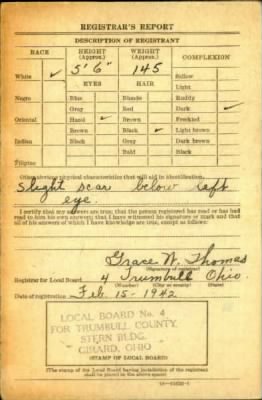 REGISTRAR'S REPORT
DESCRIPTION OF REGISTRANT
RACE HEIGHT (Approx.) WEIGHT (Approx.) COMPLEXION
White ✓ 5' 6" 145 Sallow
EYES HAIR Light
Negro Blue Blonde Ruddy
Gray Red Dark ✓
Oriental Hazel ✓ Brown Freckled
Brown Black ✓ Light brown
Indian Black Gray Dark brown
Bald Black
Filipino
Other obvious physical characteristics that will aid in identification
Slight scar below left
eye.
I certify that my answers are true; that the person registered has read or has had
read to him his own answers; that I have witnessed his signature or mark and that
all of his answers of which I have knowledge are true, except as follows:
Grace W. Thomas
(Signature of registrar)
Registrar for Local Board 4 Trumbull Ohio.
(Number) (City or county) (State)
Date of registration Feb 15-1942
LOCAL BOARD No. 4
FOR TRUMBULL COUNTY
STERN BLDG.
GIRARD, OHIO
(STAMP OF LOCAL BOARD)
(The stamp of the Local Board having jurisdiction of the registrant
shall be placed in the above space.)